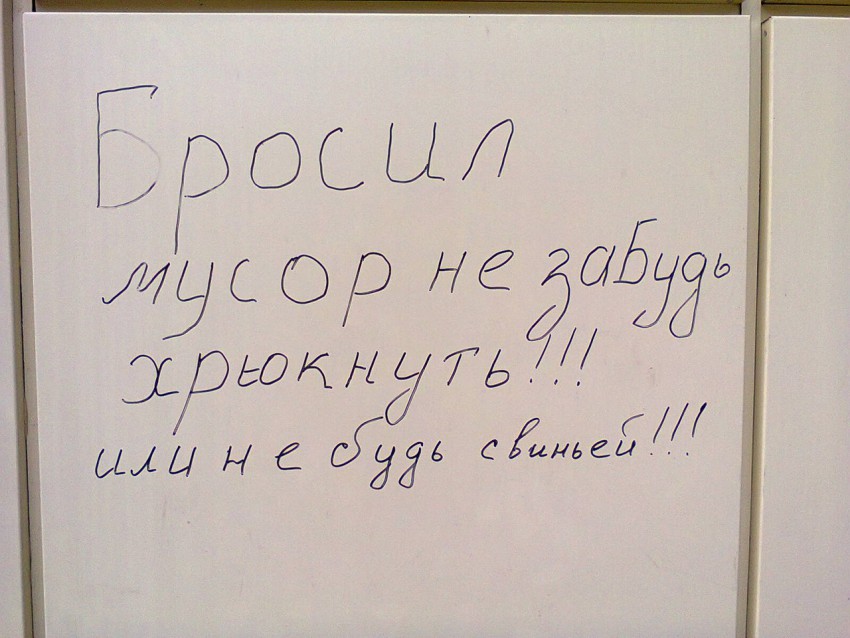 Бросил
мусор не забудь
хрюкнуть!!!
или не будь свиньей!!!